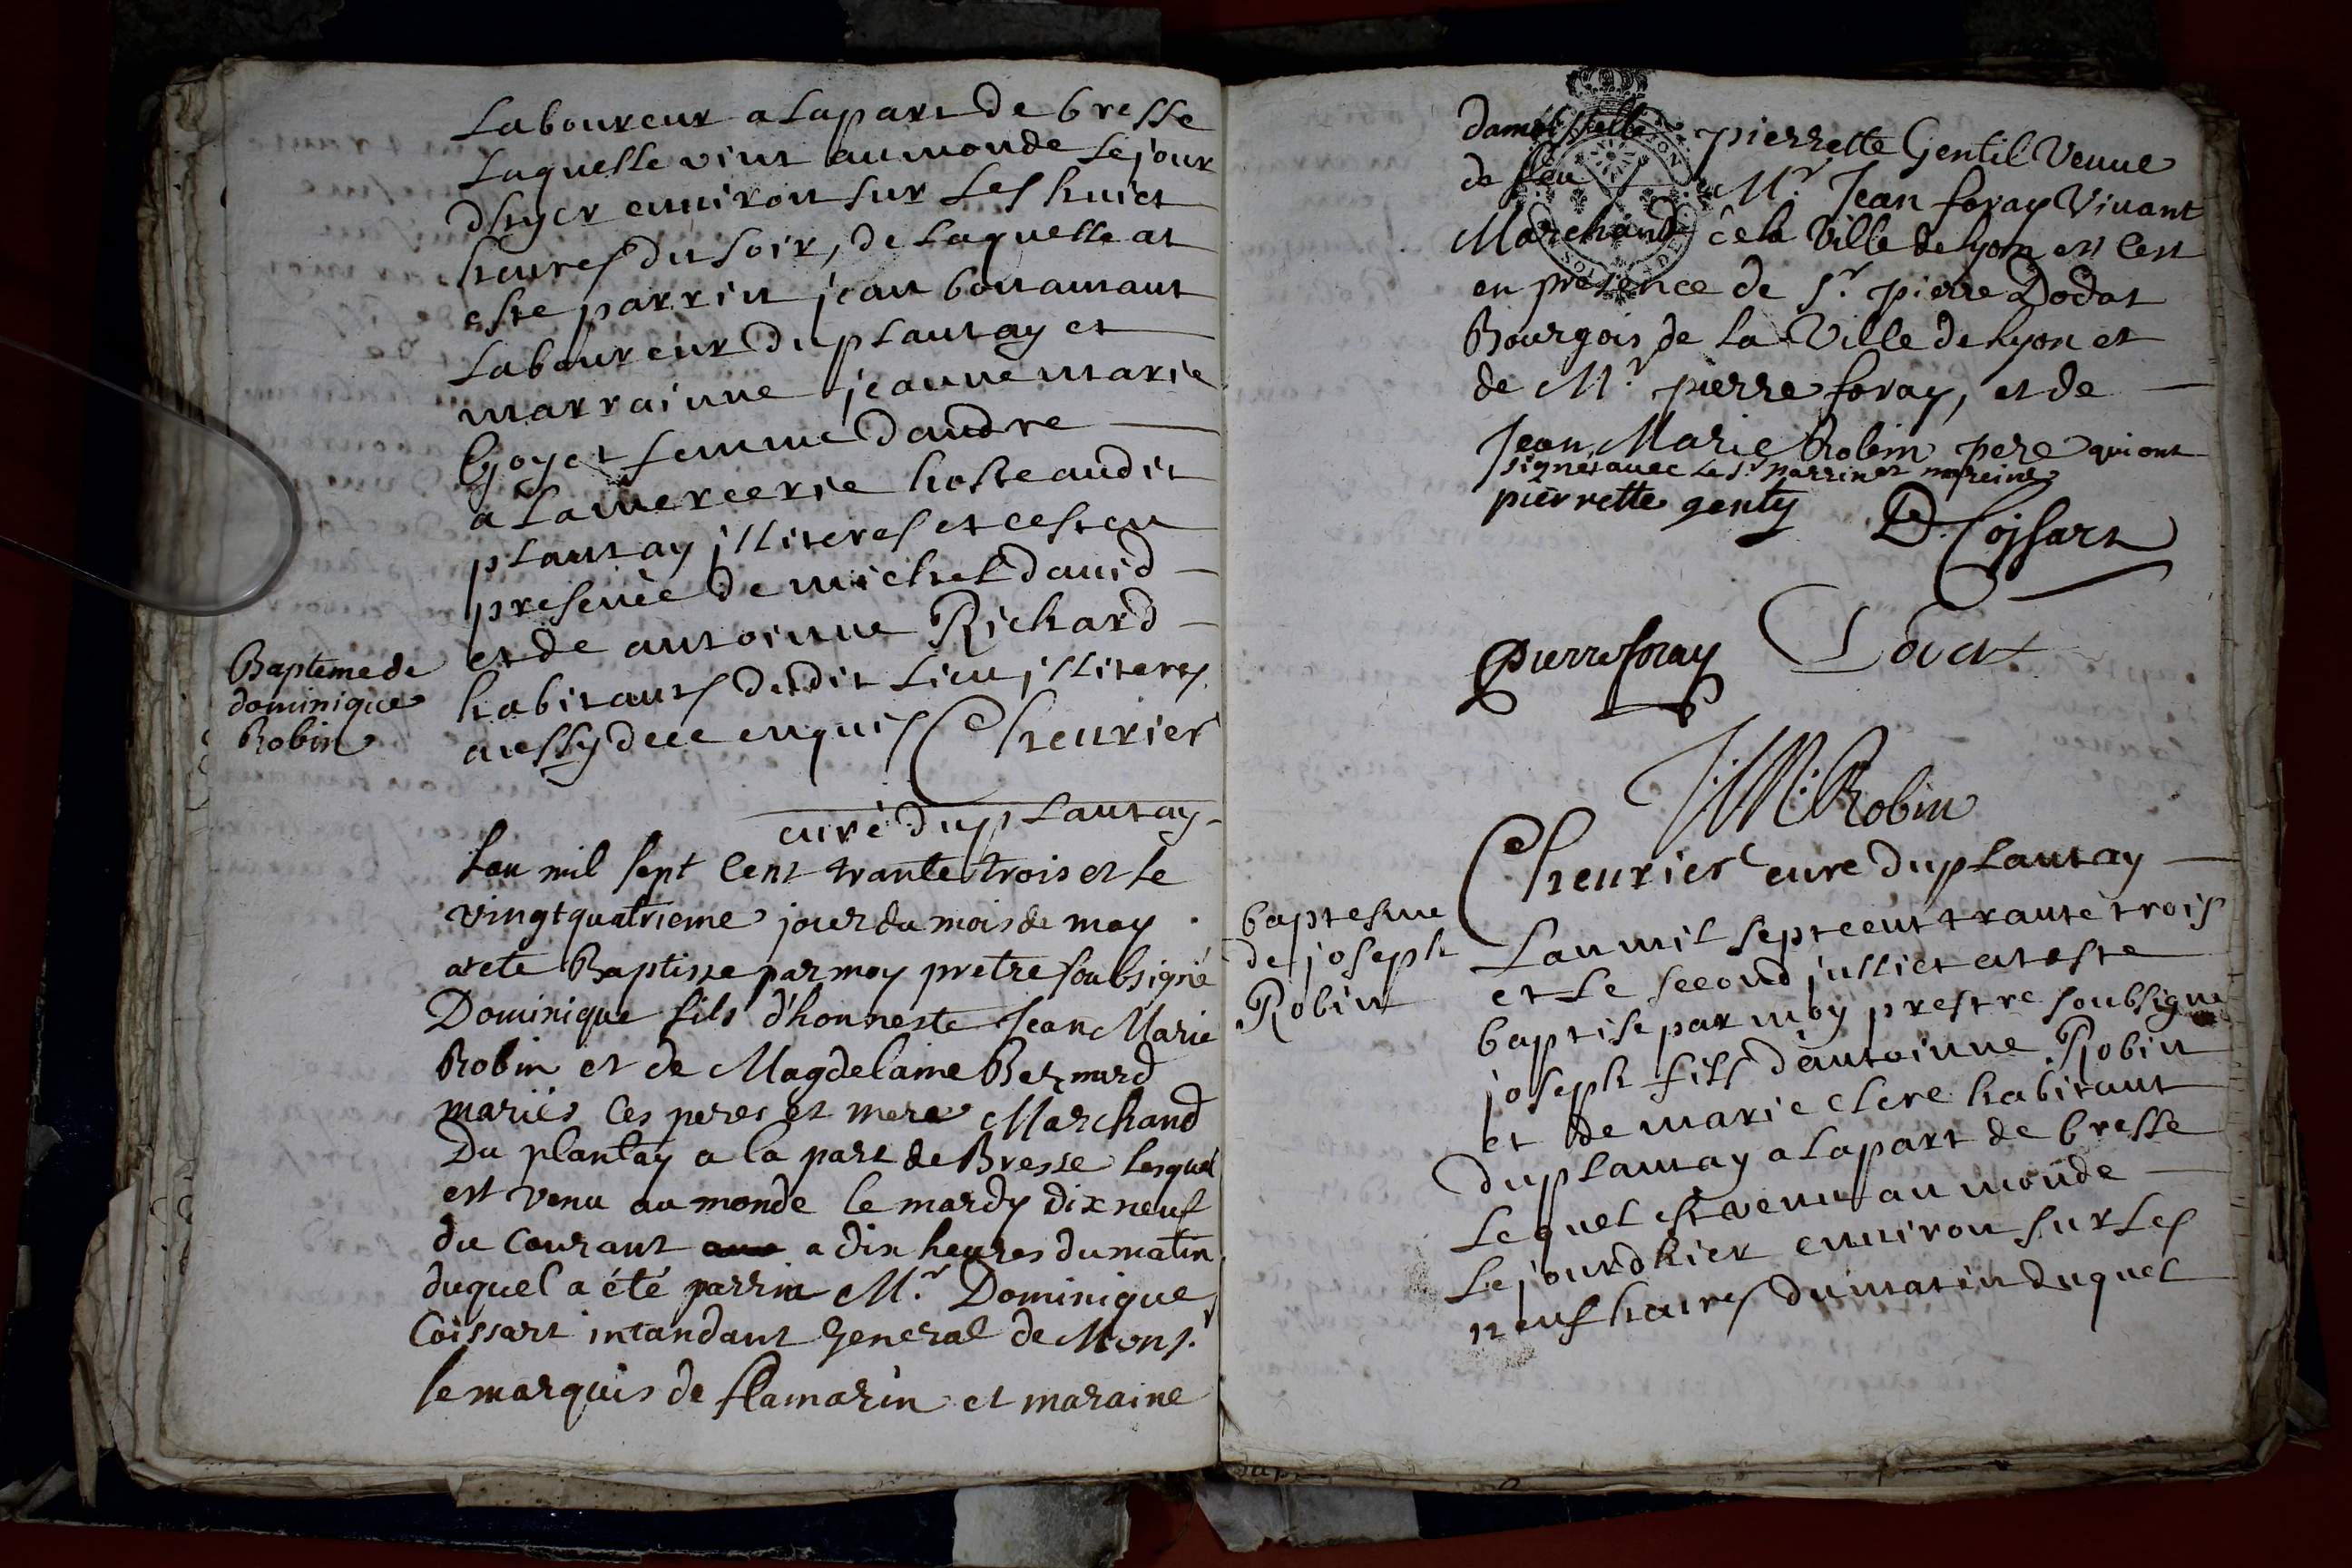 Laboureur a La part de bresse
Laquelle vint au monde Le jour
dhyer environ sur Les huict
heures du soir, de Laquelle at
este parrin jean bonamant
Laboureur du plantay et
marrainne jeanne marie
Goyet femme dandre
a La mercerie hoste audit
plantay jlliteres et cest en
presence de michel david
et de antoinne Richard
habitants dudit Lieu jlliteres
aussy de ce enquis Cheurier
curé du plantay
Bapteme de
dominique
Robin
Lan mil sept Cent trante trois et le
vingt quatrieme jour du mois de may
at ete Baptisse par moy pretre soubsigné
Dominique fils d'honneste Jean Marie
Robin et de Magdelaine Bernard
mariés Ces peres et mere Marchand
Du plantay a la part de Bresse lesquel
est venu au monde le mardy dix neuf
du Courant a dix heures du matin
duquel a été parrin Mr. Dominique
Coissart intandant General de Monsr.
le marquis de flamarin et maraine
damoisselle pierrette Gentil Veuue
de feu Mr. Jean foray Viuant
Marchand de la Ville de Lyon et Cest
en presence de Sr. pierre Dodat
Bourgois de La Ville de Lyon et
de Mr. pierre foray, et de
Jean Marie Robin pere qui ont
signés auec Le Sr parrin et mareine
pierrette genty D. Coissart
pierre foray Dodat
J: M: Robin
Cheurier cure du plantay
baptesme
de joseph
Robin
Lan mil sept cent trante trois
et Le second juilliet at este
baptise par moy prestre soubsigne
joseph fils dantoinne Robin
et de marie clere habitant
du plantay a La part de bresse
Lequel est venu au monde
Le jourdhier environ sur Les
neuf heures du matin duquel